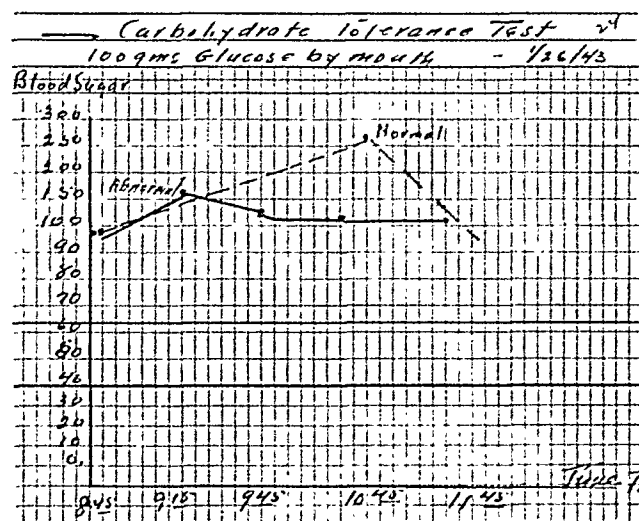 Carbohydrate Tolerance Test
100 gms Glucose by mouth - 1/26/43
Blood Sugar
300
250
200
150
100
90
80
70
60
50
40
30
20
10
0
Normal
Abnormal
Time
8:45 9:15 9:45 10:45 11:45